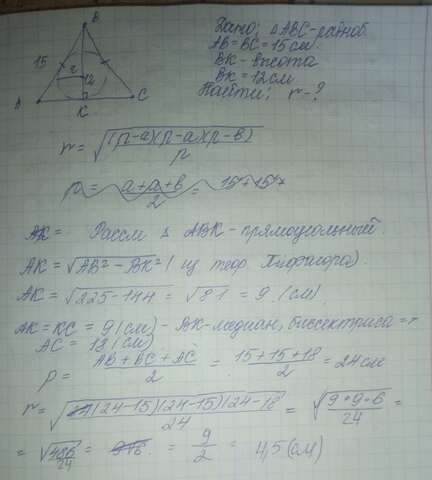 B
Дано: △ABC-равноб.
AB=BC=15см.
BK-высота
BK=12см
Найти: r-?
15
r
A
K
C
r = √((p-a)(p-a)(p-b)/p)
p = (a+a+b)/2 = 15+15+
AK = Рассм △ ABK-прямоугольный.
AK = √(AB²-BK²) (из теор Пифагора).
AK = √(225-144) = √81 = 9 (см).
AK=KC=9(см)-BK-медиан, биссектриса =>
AC=18(см)
p = (AB+BC+AC)/2 = (15+15+18)/2 = 24см
r = √((24-15)(24-15)(24-18)/24) = √(9*9*6/24) =
= √(486/24) = = 9/2 = 4,5(см)